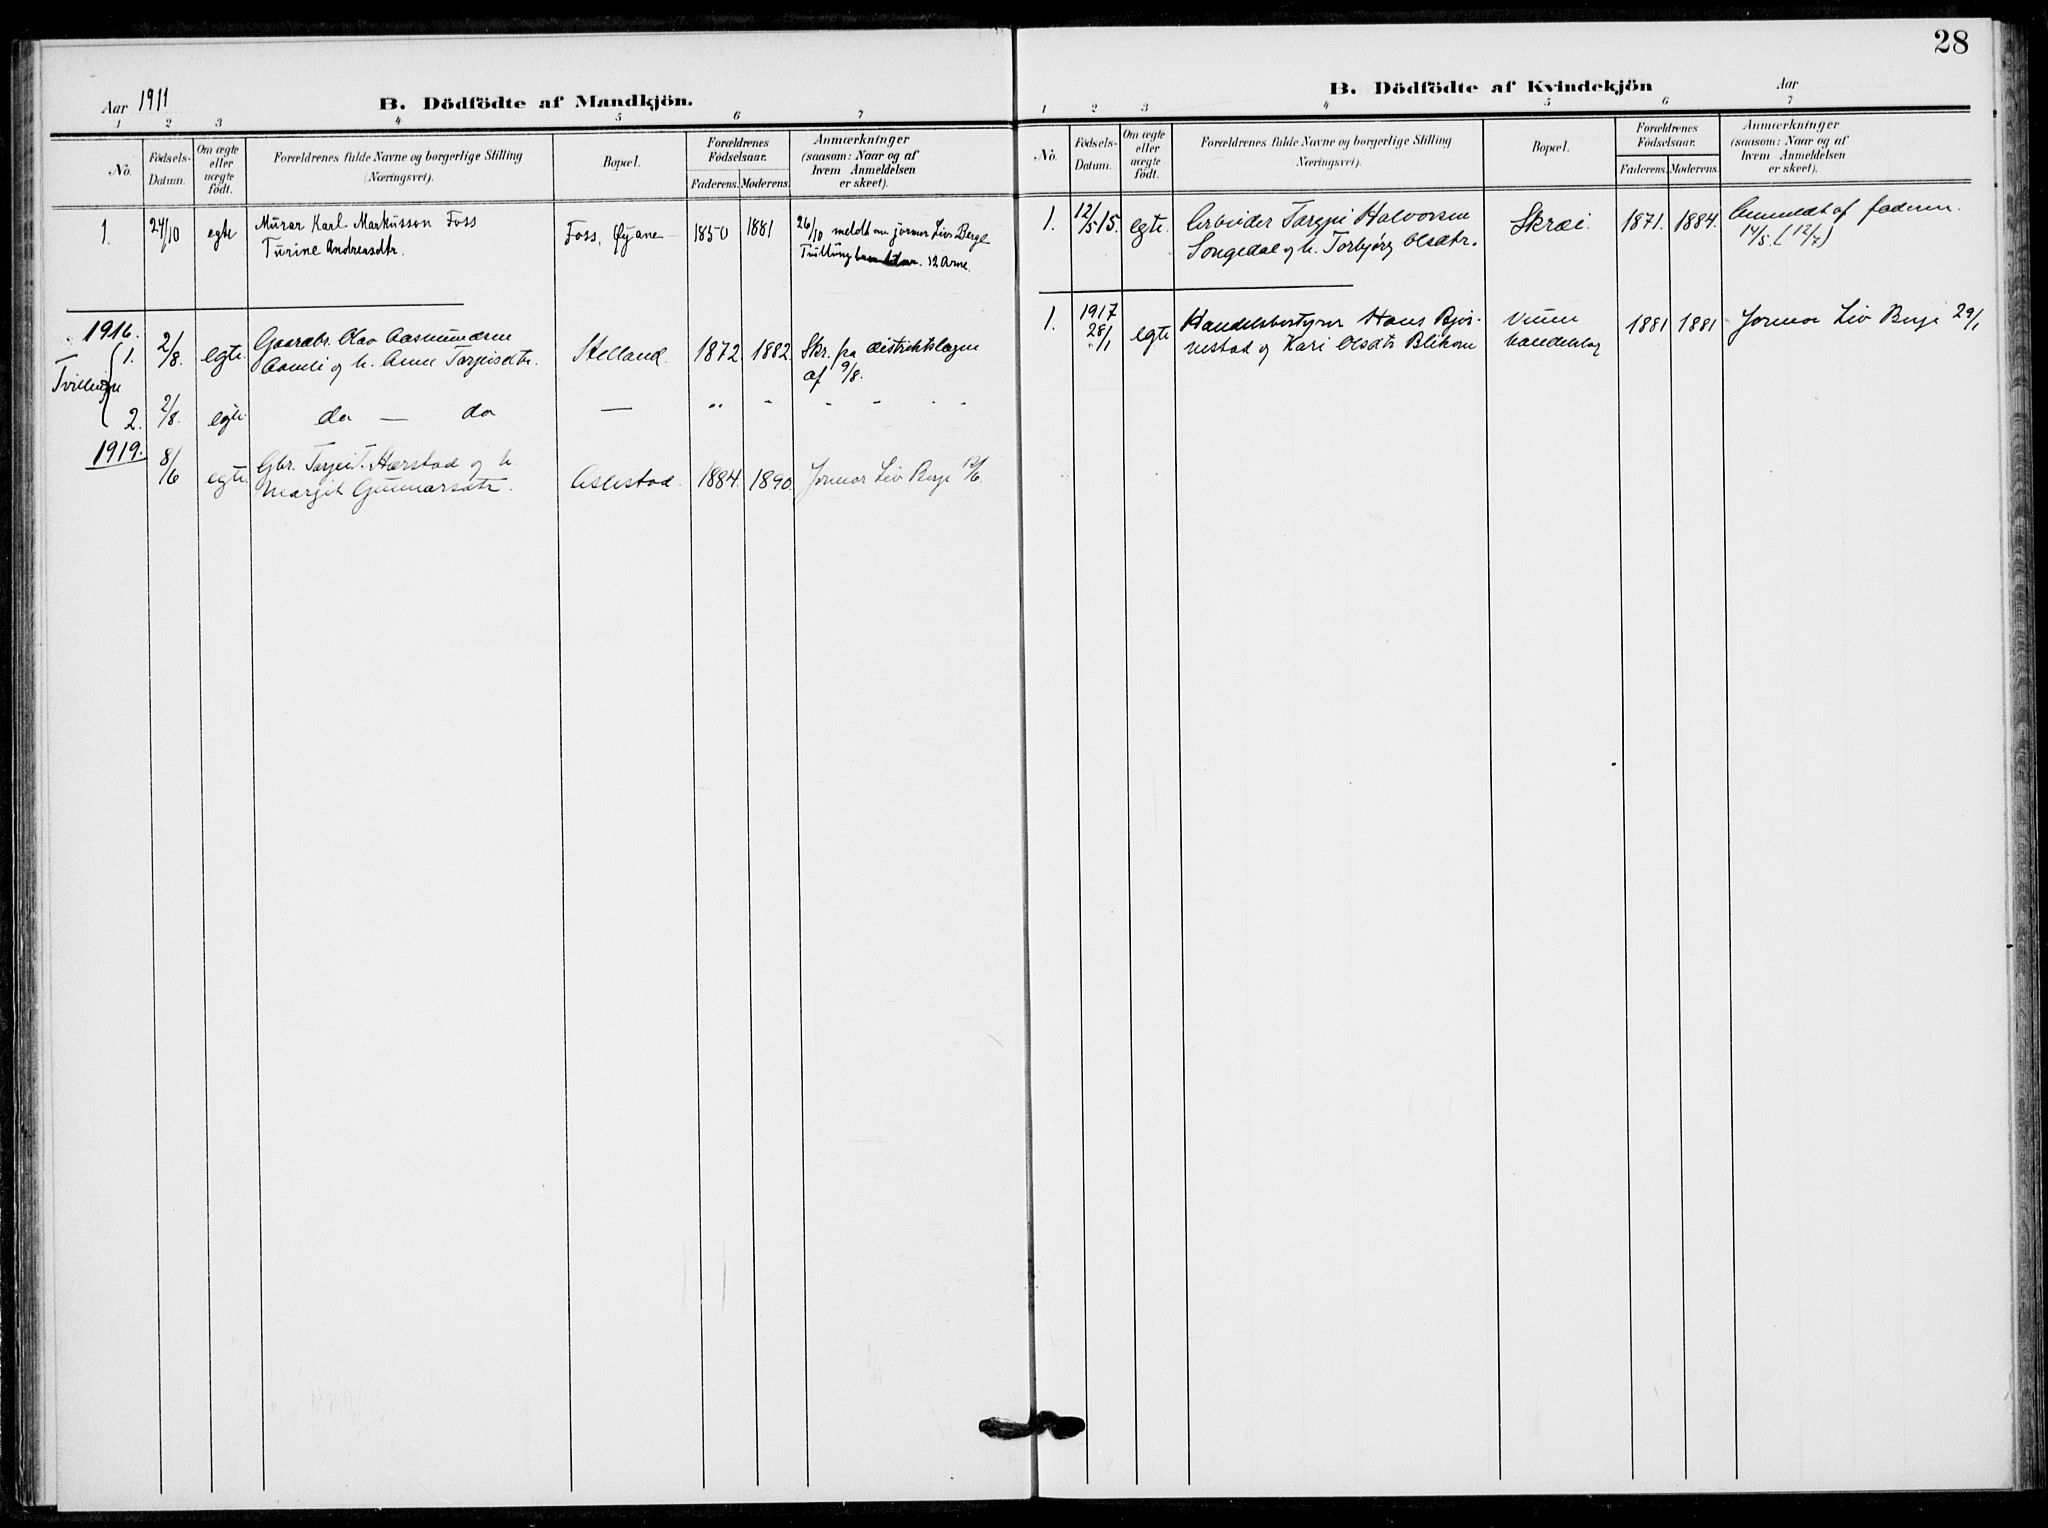 28
Aar 1911
B. Dödfödte af Mandkjön.
1 2 3 4 5 6 7
No.
Födsels-
Datum.
Om ægte
eller
uægte
födt.
Forældrenes fulde Navne og borgerlige Stilling
(Næringsvei).
Bopæl.
Forældrenes
Födselsaar.
Faderens. Moderens.
Anmærkninger
(saasom: Naar og af
hvem Anmeldelsen
er skeet).
1. 24/10 egte Murar Karl Markusson Foss
Turine Andreasdtr.
Foss, Øyane 1850 1881
26/10 meldt av jormor Liv Berge
Tvilling 12 Arne
1916.
Tvillinger
1. 2/8. egte. Gaardbr. Olav Aasmundsen
Aamli og h. Anne Targeisdtr.
Helland. 1872 1882.
Skr. fra distriktslægen
af 9/8.
2. 2/8. egte. do — do — " " " " " "
1919.
8/6 egte Gbr. Targei T. Harstad og h.
Margit Gunnarsdtr.
Aslestad. 1884. 1890. Jormor Liv Berge 12/6.
B. Dödfödte af Kvindekjön
Aar
1 2 3 4 5 6 7
No.
Födsels-
Datum.
Om ægte
eller
uægte
födt.
Forældrenes fulde Navne og borgerlige Stilling
(Næringsvei).
Bopæl.
Forældrenes
Födselsaar.
Faderens. Moderens.
Anmærkninger
(saasom: Naar og af
hvem Anmeldelsen
er skeet).
1. 12/5 15. egte. Arbeider Targei Halvorsen
Songedal og h. Torbjørg Olsdtr.
Skræi. 1871. 1884.
Anmeldt af faderen.
14/5. (12/7)
1. 1917
28/1 egte Handelsbestyrer Hans Bjør-
nestad og Kari Olsdtr Blikom
1881 1881 Jormor Liv Berge 29/1